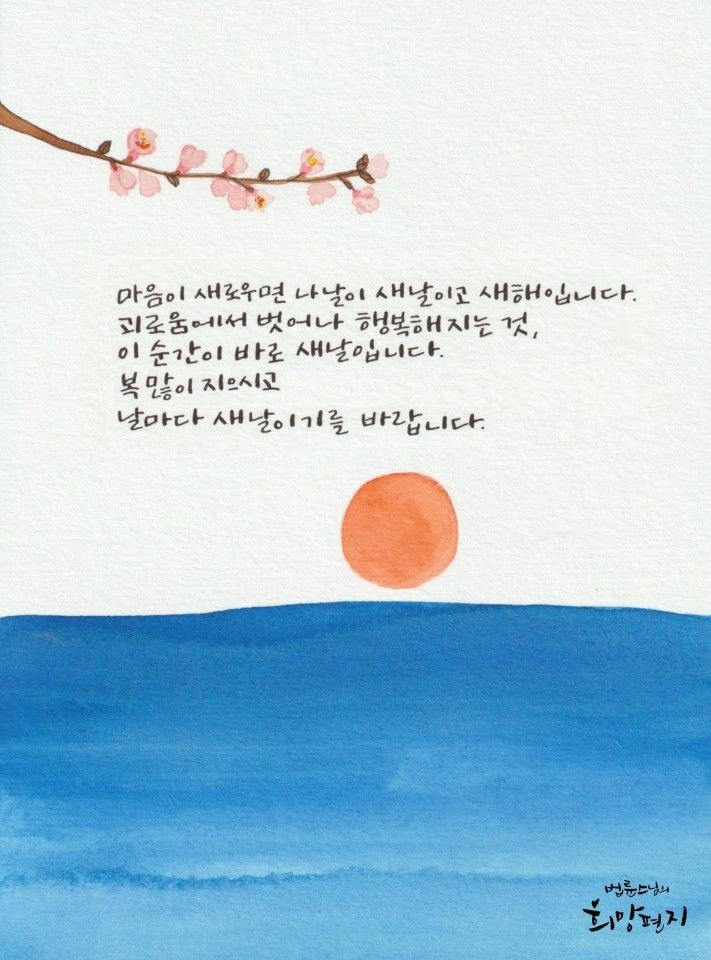 마음이 새로우면 나날이 새날이고 새해입니다.
괴로움에서 벗어나 행복해지는 것,
이 순간이 바로 새날입니다.
복 많이 지으시고
날마다 새날이기를 바랍니다.
법륜스님의
희망편지